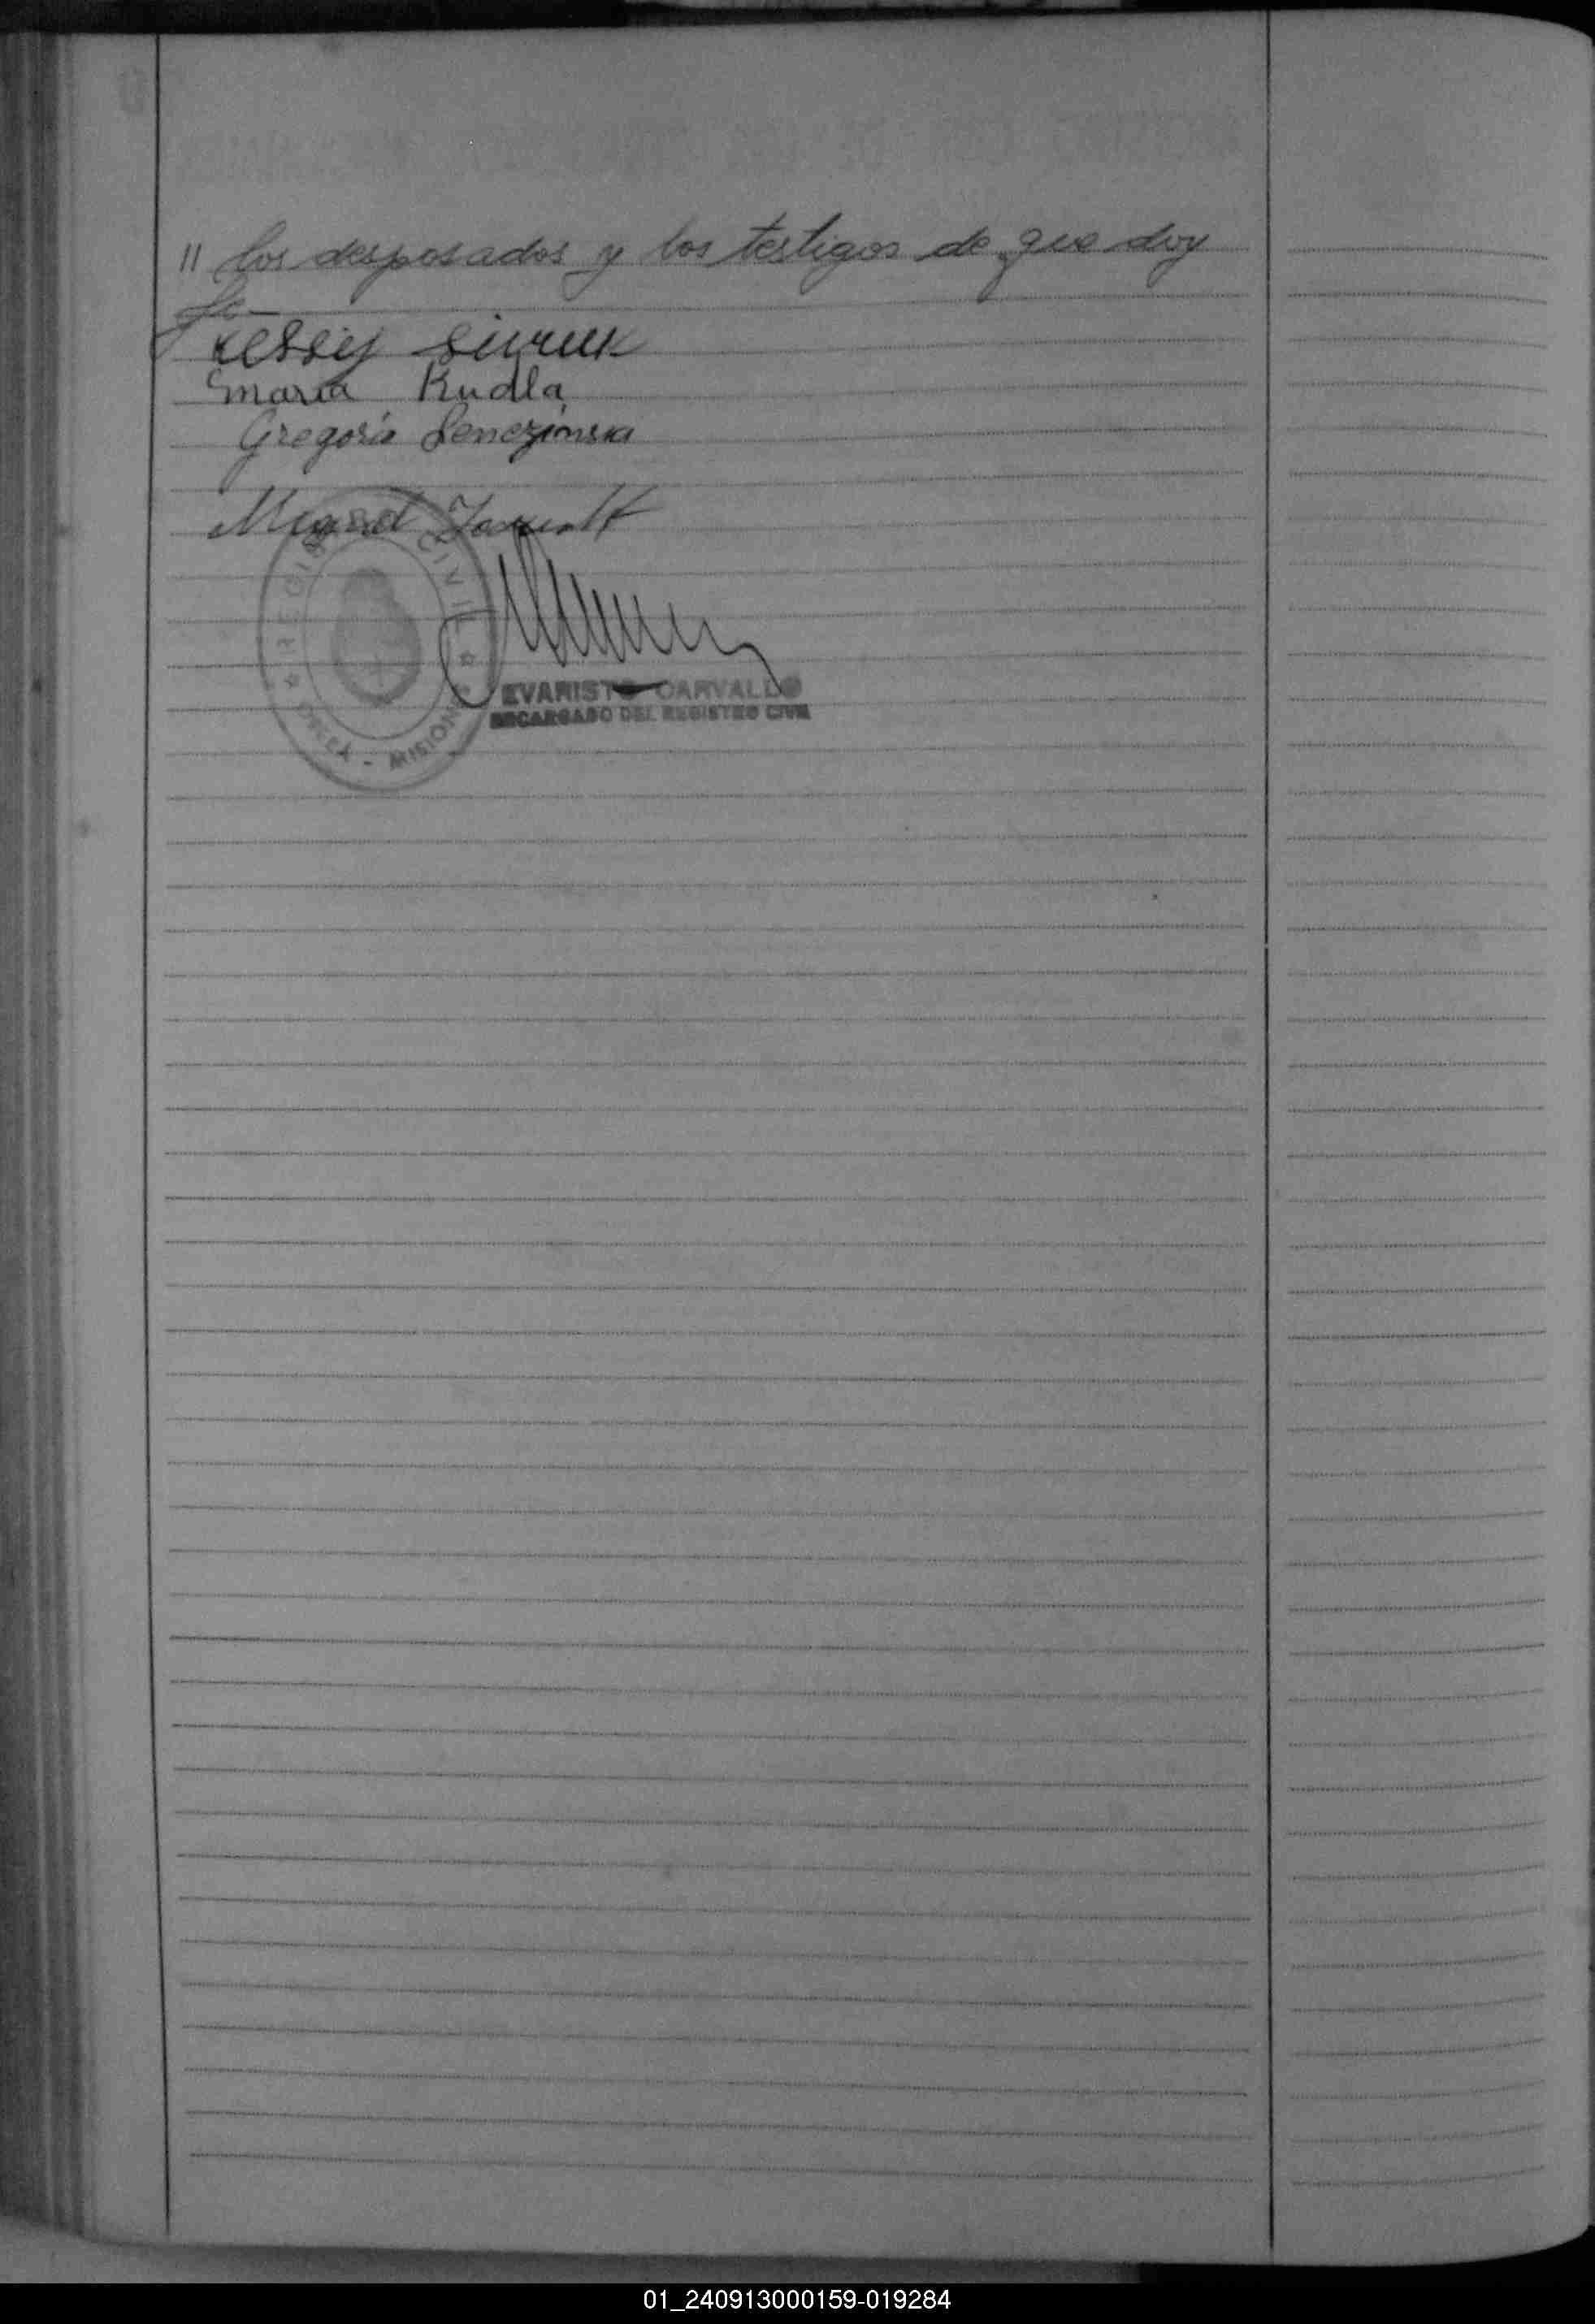 // los desposados y los testigos de que doy
fe
Maria Kudla
Gregoria
Miguel
REGISTRO CIVIL
MISIONES
EVARISTO CARVALLO
ENCARGADO DEL REGISTRO CIVIL
01_240913000159-019284